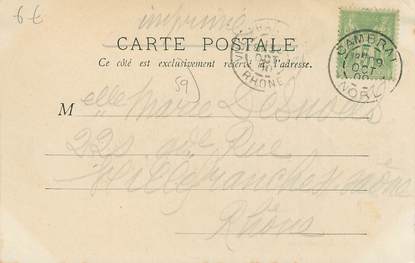 6 €
imprimé
CARTE POSTALE
Ce côté est exclusivement réservé à l'adresse.
59
CAMBRAI
OCT
NORD
RHONE
Melle Marie
22 Rue
Villefranche s/ Saône
Rhône